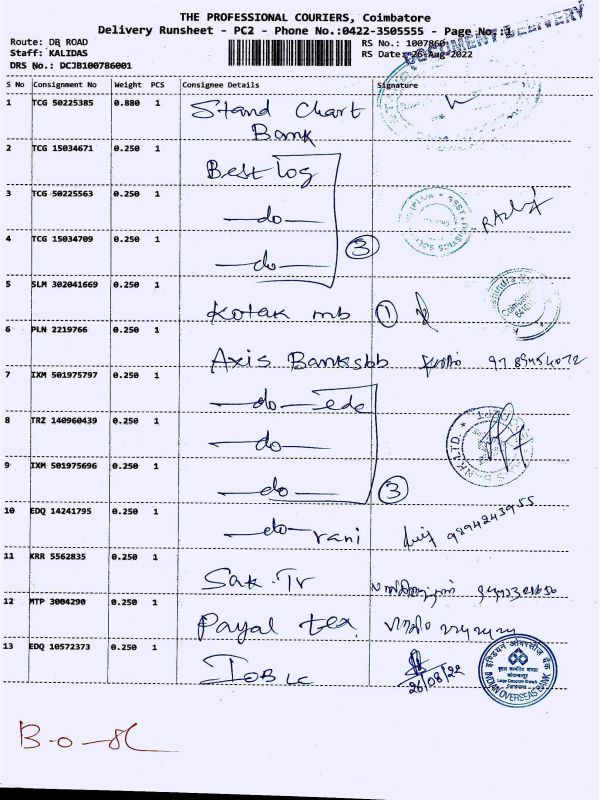 THE PROFESSIONAL COURIERS, Coimbatore
Delivery Runsheet - PC2 - Phone No.:0422-3505555 - Page No.:1
Route: DB ROAD
RS No.: 1007860
Staff: KALIDAS
RS Date: 26-Aug-2022
DRS No.: DCJB100786001
S No Consignment No Weight PCS Consignee Details Signature
1 TCG 50225385 0.880 1 Stand Chart
Bank
2 TCG 15034671 0.250 1 Best log
3 TCG 50225563 0.250 1 —do—
4 TCG 15034709 0.250 1 —do— 3
5 SLM 302041669 0.250 1 Kotak mb 1
6 PLN 2219766 0.250 1 Axis Bank sbb
7 IXM 501975797 0.250 1 —do— edc
8 TRZ 140960439 0.250 1 —do—
9 IXM 501975696 0.250 1 —do— 3
10 EDQ 14241795 0.250 1 —do— rani 9894243955
11 KRR 5562835 0.250 1 Sak. Tr
12 MTP 3004290 0.250 1 Payal tex
13 EDQ 10572373 0.250 1 IOB LC 26/08/22
इण्डियन ओवरसीज़ बैंक
INDIAN OVERSEAS BANK